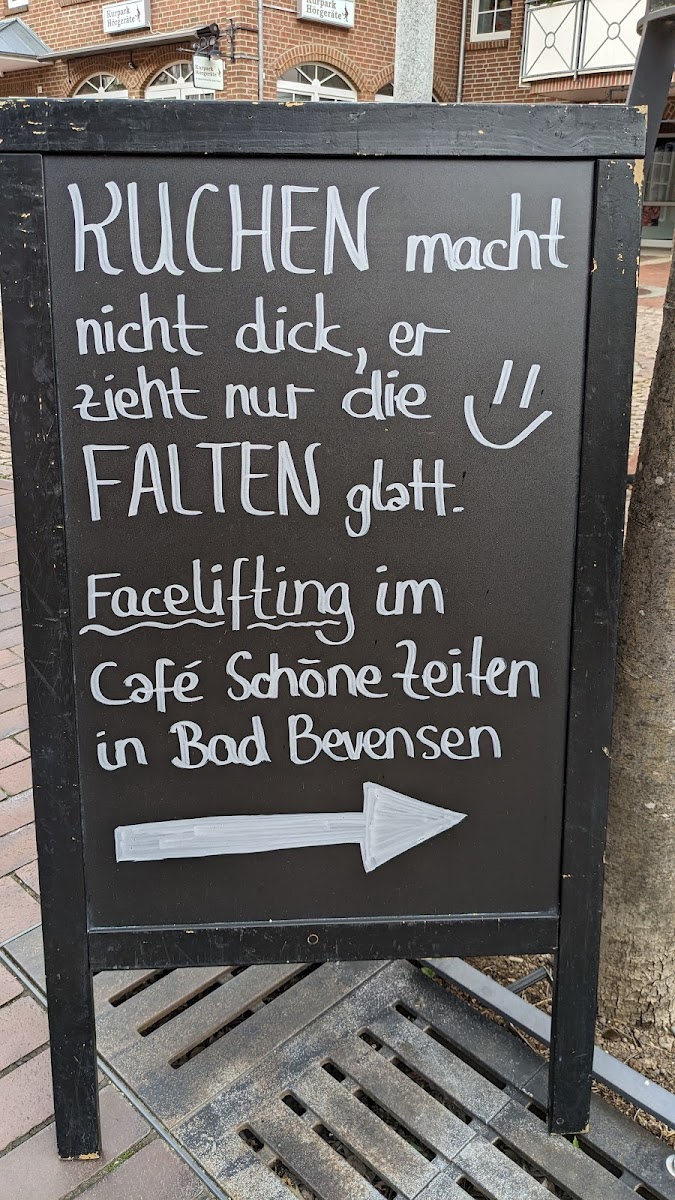 Kurpark
Hörgeräte
Kurpark
Hörgeräte
Kurpark
Hörgeräte
KUCHEN macht
nicht dick, er
zieht nur die
FALTEN glatt.
Facelifting im
Café Schöne Zeiten
in Bad Bevensen